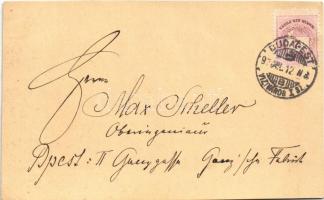 BUDAPEST
Herrn
Max Scheller
Oberingenieur
Bpest: II Ganzgasse Ganz'sche Fabrik